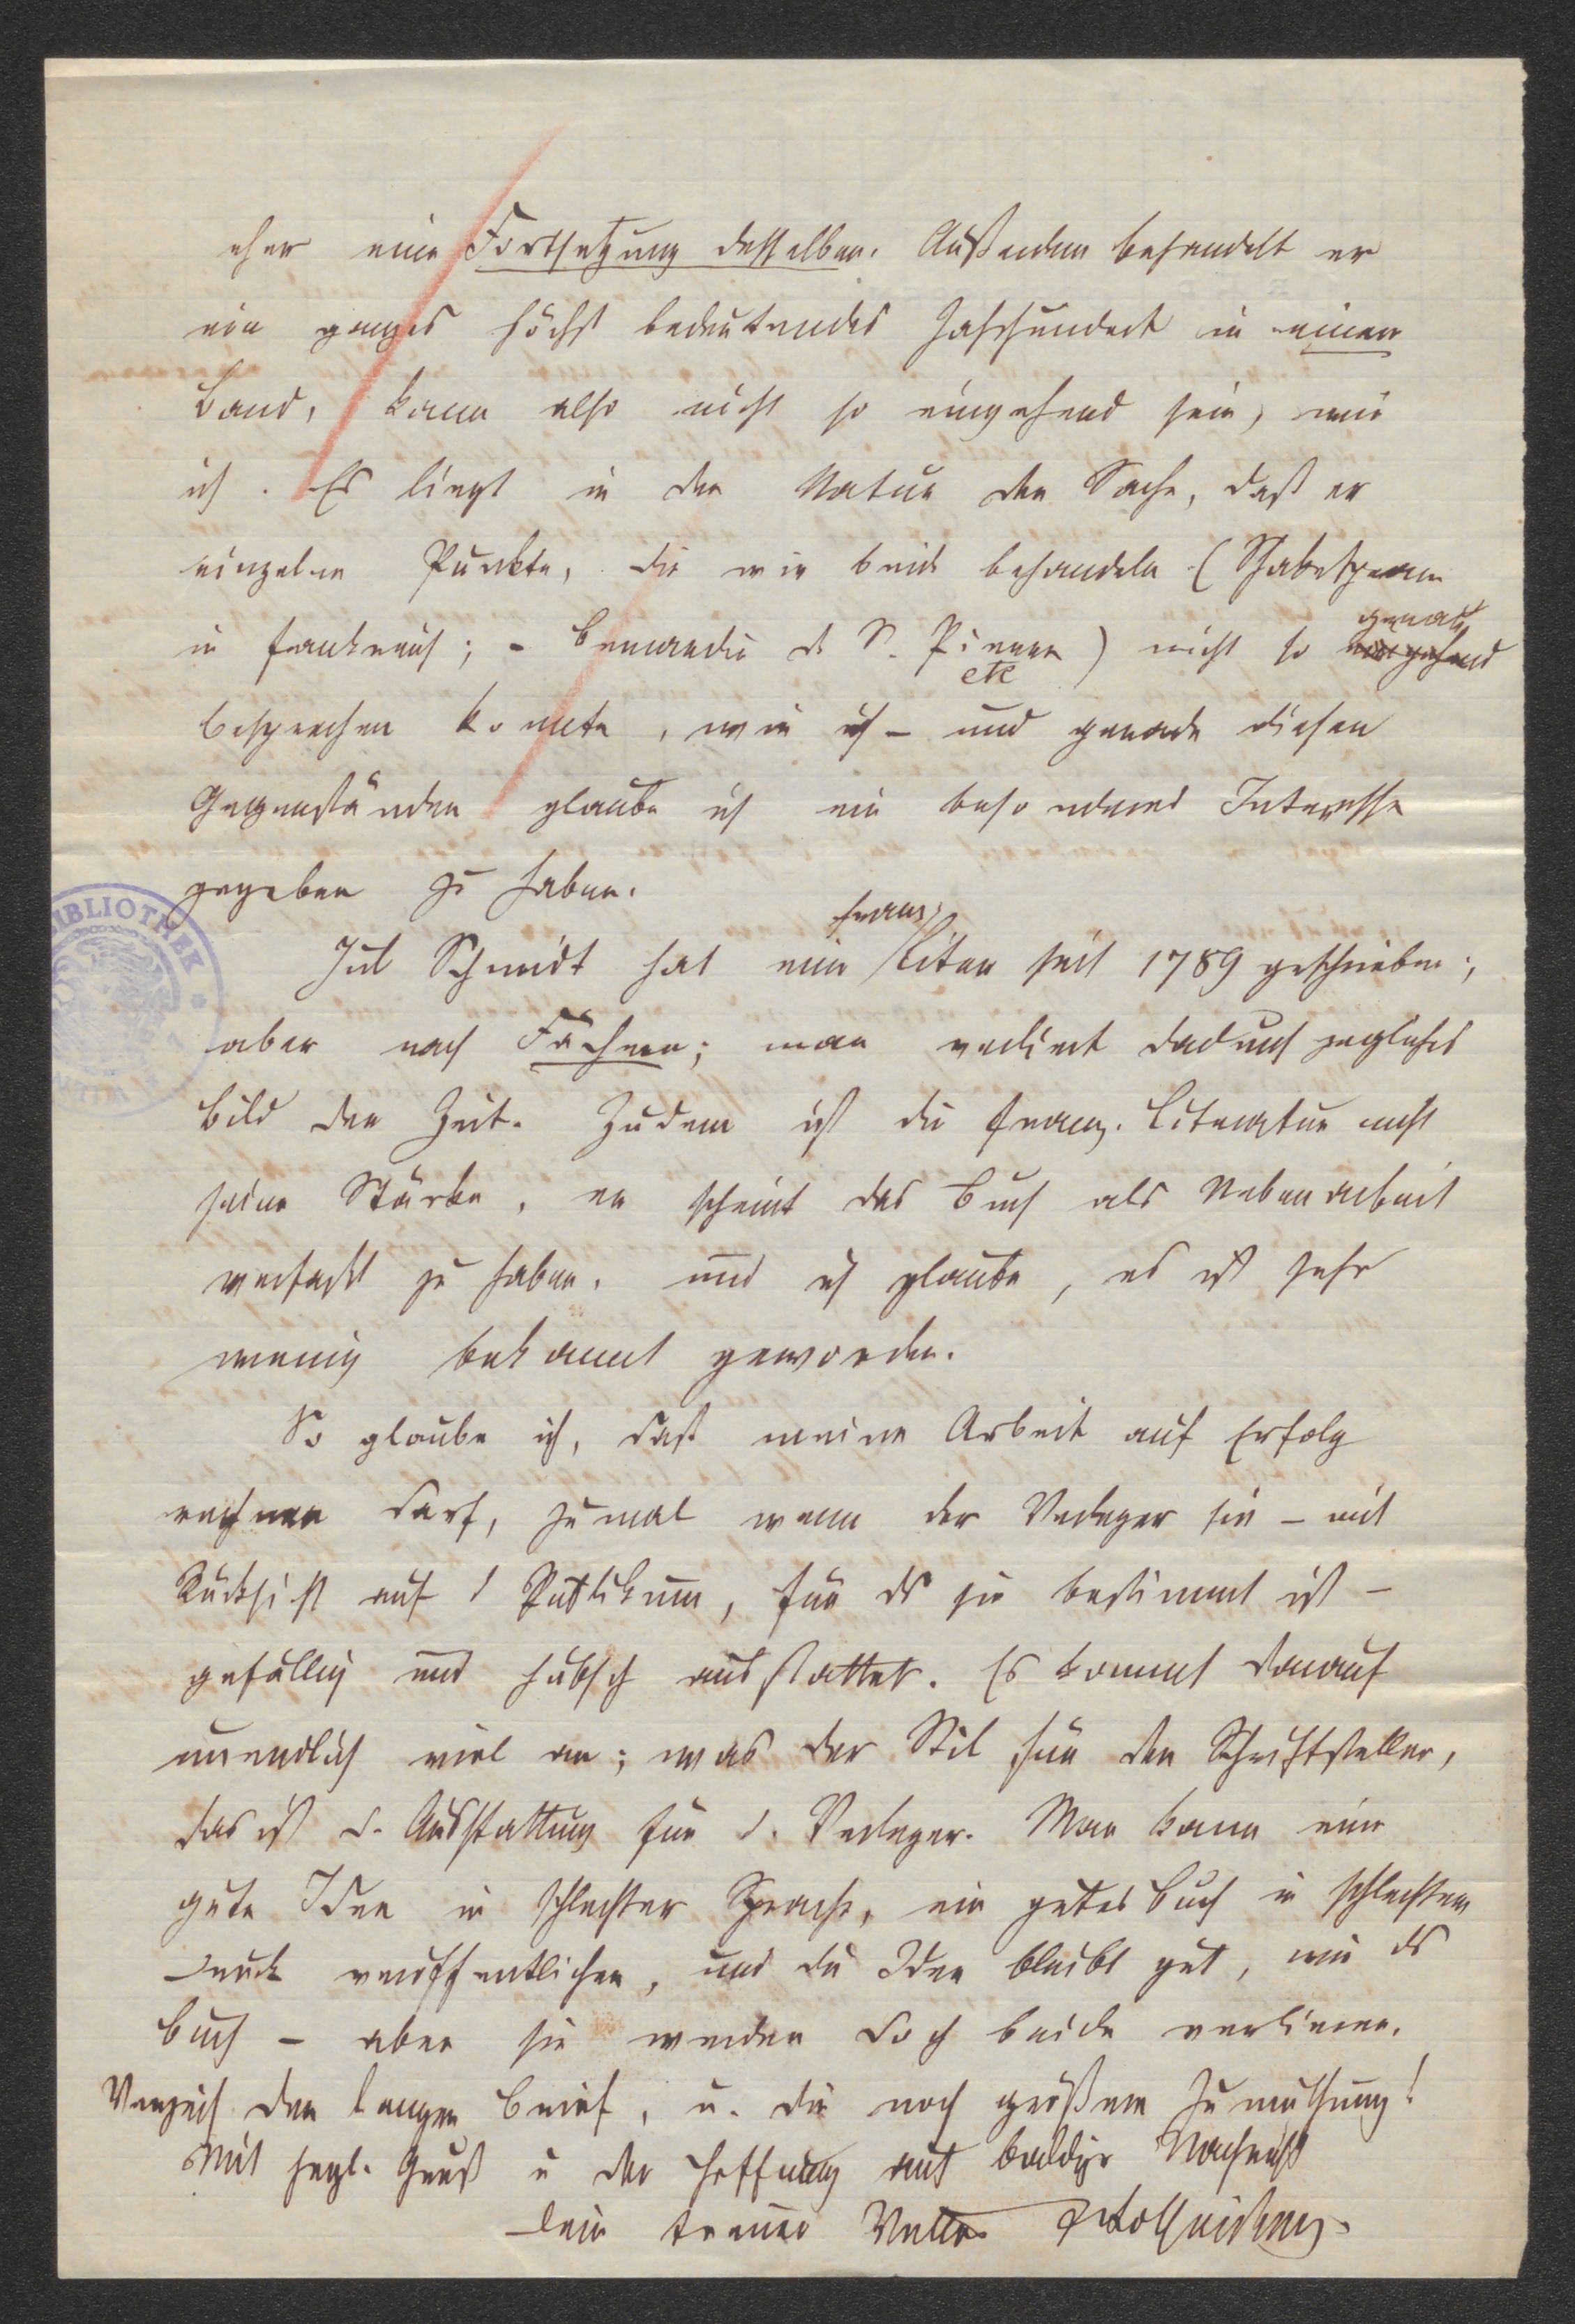 eher eine Fortsetzung desselben. Außerdem behandelt er
ein ganzes höchst bedeutendes Jahrhundert in einem
Band, kann also nicht so eingehend sein, wie
ich. Es liegt in der Natur der Sache, daß er
einzelne Punkte, die wir beide behandeln (Shakespeare
in Frankreich; – Bernardin d. S. Pierre etc) nicht so genau
besprechen konnte, wie ich – und gerade diesen
Gegenständen glaube ich ein besonderes Interesse
gegeben zu haben.
Jul Schmidt hat eine franz. Liter seit 1789 geschrieben;
aber nach Fächern; man verliert dadurch jegliches
Bild der Zeit. Zudem ist die franz. Literatur nicht
seine Stärke, er scheint das Buch als Nebenarbeit
verfaßt zu haben, und ich glaube, es ist sehr
wenig bekannt geworden.
So glaube ich, daß meine Arbeit auf Erfolg
rechnen darf, zumal wenn der Verleger sie – mit
Rücksicht auf d Publikum, für ds sie bestimmt ist –
gefällig und hübsch ausstattet. Es kommt darauf
unendlich viel an; was der Stil für den Schriftsteller,
das ist d. Ausstattung für d. Verleger. Man kann eine
gute Idee in schlechter Sprache, ein gutes Buch in schlechtem
Druck veröffentlichen, und die Idee bleibt gut, wie ds
Buch – aber sie werden doch beide verlieren.
Verzeih den langen Brief, u. die noch größere Zumuthung!
Mit herzl. Gruß u der Hoffnung auf baldige Nachricht
Dein treuer Vetter
BIBLIOTHEK